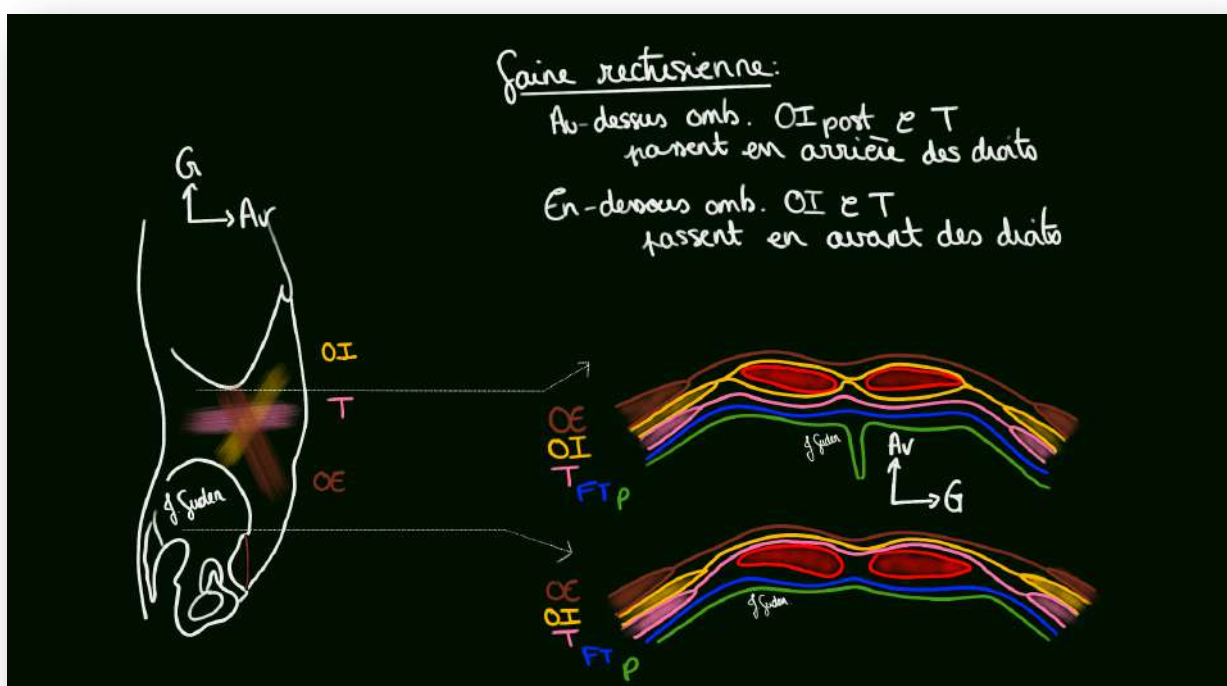 Gaine rectusienne:
Au-dessus omb. OI post e T
passent en arrière des droits
En-dessous omb. OI e T
passent en avant des droits
G
Av
OI
T
OE
J. Suden
OE
OI
T
FT P
J Suden
Av
G
OE
OI
T
FT P
J Suden